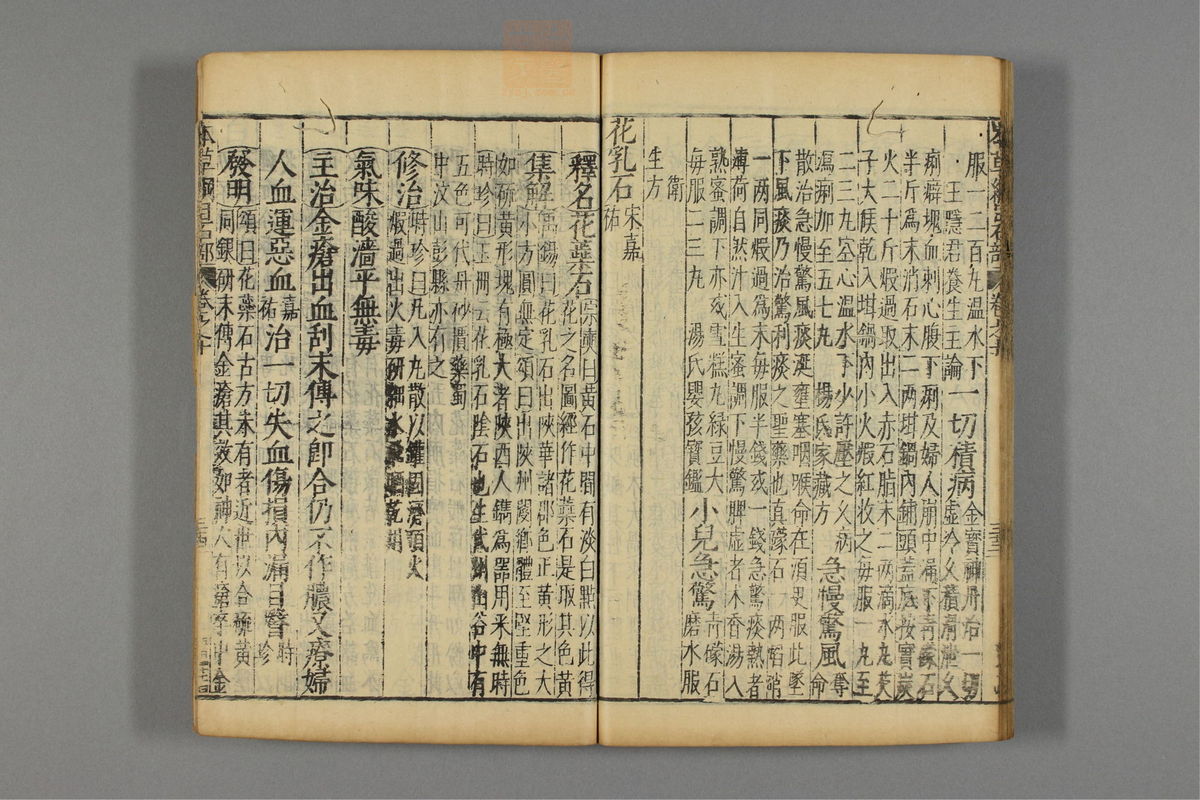 服一二百丸溫水下一切積病金寶神丹治一切
王隱君養生主論
虛冷久積滑泄久
痢癖塊血刺心腹下痢及婦人崩中漏下青礞石
半斤為末消石末二兩坩鍋內鋪頭蓋底按實炭
火二十斤煅過取出入赤石脂末二兩滴水丸芡
子大候乾入坩鍋內小火煅紅收之每服一丸至
二三丸空心溫水下以少許壓之久病
瀉痢加至五七丸 楊氏家藏方
急慢驚風奪命
散治急慢驚風痰涎壅塞咽喉命在須臾服此墜
下風痰乃治驚利痰之聖藥也真礞石一兩焰消
一兩同煅過為末每服半錢或一錢急驚痰熱者
薄荷自然汁入生蜜調下慢驚脾虛者木香湯入
熟蜜調下亦或雪糕丸綠豆大
每服二三丸 湯氏嬰孩寶鑑
小兒急驚青礞石
磨水服
衛
生方
花乳石宋嘉
祐
釋名花蕊石宗奭曰黃石中間有淡白點以此得
花之名圖經作花蕊石是取其色黃
集解禹錫曰花乳石出陝華諸郡色正黃形之大
小方圓無定頌曰出陝州閿鄉體至堅重色
如硫黃形塊有極大者陝西人鐫為器用采無時
時珍曰玉冊云花乳石陰石也生代州山谷中有
五色可代丹砂匱藥蜀
中汶山彭縣亦有之
修治時珍曰凡入丸散以罐固濟頂火
煅過出火毒研細水飛曬乾用
氣味酸濇平無毒
主治金瘡出血刮末傅之即合仍不作膿又療婦
人血運惡血嘉祐治一切失血傷損內漏目翳時珍
發明頌曰花蕊石古方未有者近世以合硫黃
同鍛研末傅金瘡其效如神人有倉卒中金
本草綱目石部 卷之十